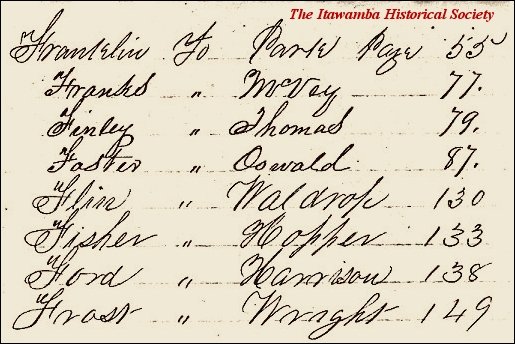 The Itawamba Historical Society
Franklin To Park Page 55
Franks " McVey 77.
Finley " Thomas 79.
Foster " Oswald 87.
Flin " Waldrop 130
Fisher " Hopper 133
Ford " Harrison 138
Frost " Wright 149